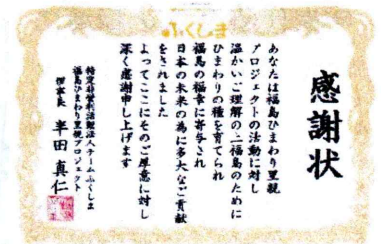 ふくしま
感謝状
あなたは福島ひまわり里親
プロジェクトの活動に対し
温かいご理解の元福島のために
ひまわりの種を育てられ
福島の福幸に寄与され
日本の未来の為に多大なご貢献
をされました
よってここにそのご厚意に対し
深く感謝申し上げます
特定非営利活動法人チームふくしま
福島ひまわり里親プロジェクト
理事長 半田真仁